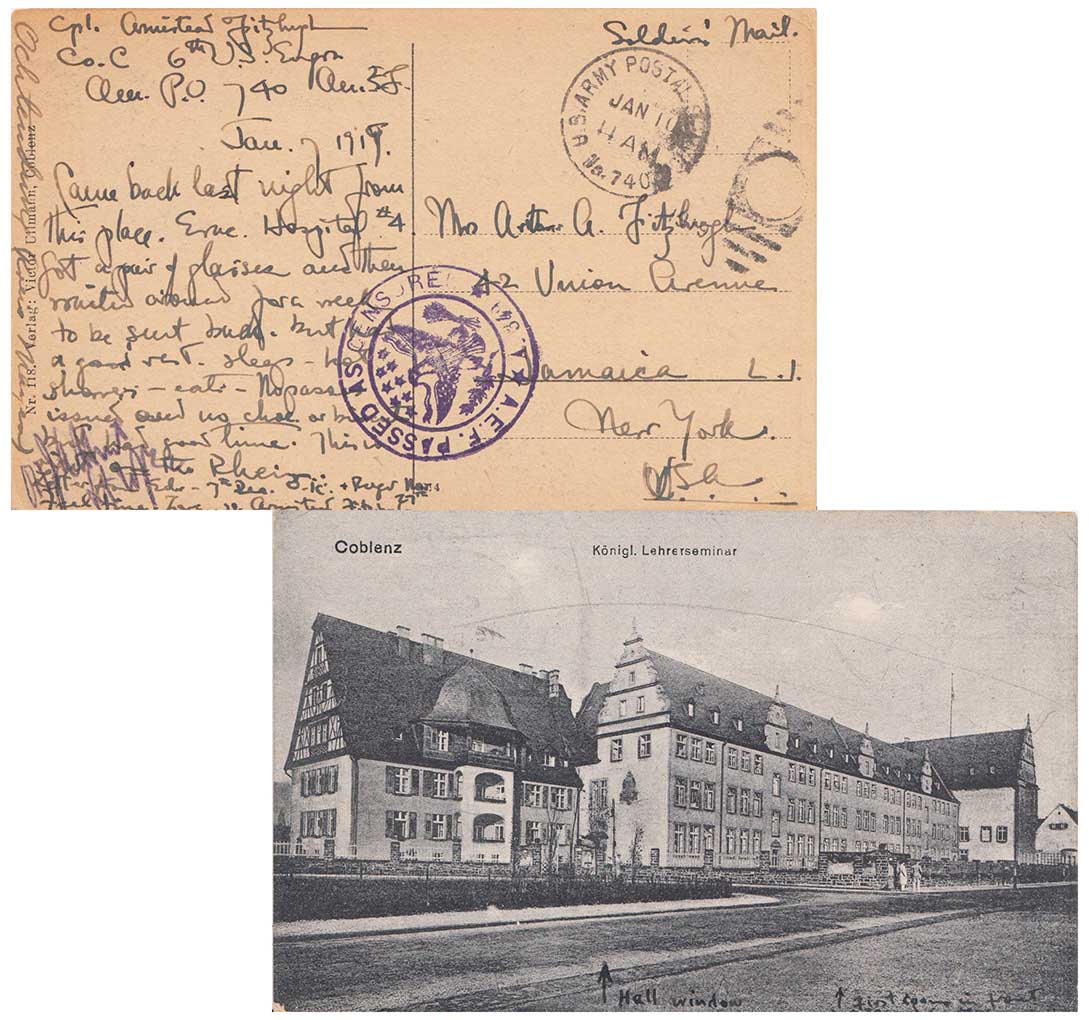 Cpl. Armistead Fitzhugh
Co. C 6th U.S. Engrs
Am. P.O. 740 Am. E.F.
Jan. 7 1919.
Came back last night from
this place. Evac. Hospital #4.
Got a pair of glasses and then
waited around for a week
to be sent back. But had
a good rest - sleep - hot
- eats - No passes
issued and no choc. or
had good time. This is
on the Rhein.
Soldiers' Mail.
U.S. ARMY POSTAL
JAN 10
11 AM
No. 740
Mrs Arthur A. Fitzhugh
42 Union Avenue
Jamaica L.I.
New York.
USA.
A.E.F. PASSED AS CENSORED
Nr. 118. Verlag: Victor Ullmann, Coblenz
Ochtendung
Coblenz
Königl. Lehrerseminar
↑ Hall window
↑ first room in front